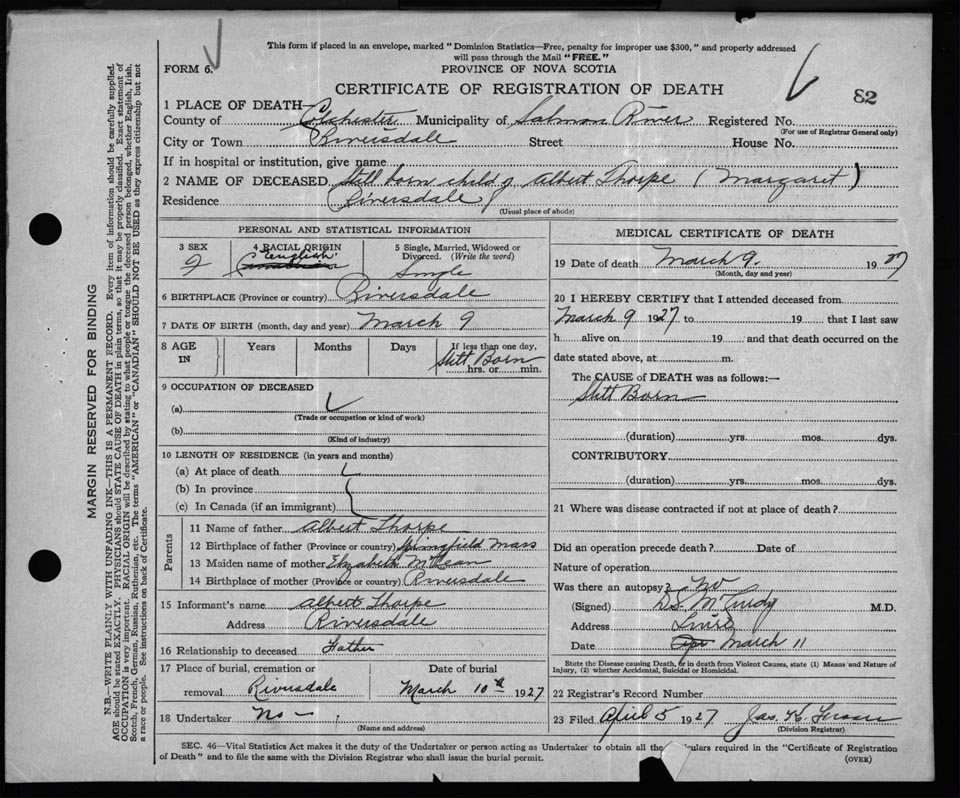 This form if placed in an envelope, marked "Dominion Statistics—Free, penalty for improper use $300," and properly addressed
will pass through the Mail "FREE."
FORM 6.
PROVINCE OF NOVA SCOTIA
CERTIFICATE OF REGISTRATION OF DEATH
82
1 PLACE OF DEATH—
County of Colchester Municipality of Salmon River Registered No.
(For use of Registrar General only)
City or Town Riversdale Street House No.
If in hospital or institution, give name
2 NAME OF DECEASED Still born child of Albert Thorpe (Margaret)
Residence Riversdale
(Usual place of abode)
PERSONAL AND STATISTICAL INFORMATION
3 SEX 4 RACIAL ORIGIN 5 Single, Married, Widowed or
Divorced. (Write the word)
English
Single
6 BIRTHPLACE (Province or country) Riversdale
7 DATE OF BIRTH (month, day and year) March 9
8 AGE IN Years Months Days If less than one day,
Still Born
hrs. or min.
9 OCCUPATION OF DECEASED
(a)
(Trade or occupation or kind of work)
(b)
(Kind of industry)
10 LENGTH OF RESIDENCE (in years and months)
(a) At place of death
(b) In province
(c) In Canada (if an immigrant)
Parents
11 Name of father Albert Thorpe
12 Birthplace of father (Province or country) Springfield Mass
13 Maiden name of mother Elizabeth McLean
14 Birthplace of mother (Province or country) Riversdale
15 Informant's name Albert Thorpe
Address Riversdale
16 Relationship to deceased Father
17 Place of burial, cremation or Date of burial
removal Riversdale March 10th 1927
18 Undertaker No —
(Name and address)
MEDICAL CERTIFICATE OF DEATH
19 Date of death March 9. 1927
(Month, day and year)
20 I HEREBY CERTIFY that I attended deceased from
March 9 1927 to 19 that I last saw
h alive on 19 and that death occurred on the
date stated above, at m.
The CAUSE of DEATH was as follows:—
Still Born
(duration) yrs. mos. dys.
CONTRIBUTORY
(duration) yrs. mos. dys.
21 Where was disease contracted if not at place of death?
Did an operation precede death? Date of
Nature of operation
Was there an autopsy? No
(Signed) McCurdy M.D.
Address
Date March 11
State the Disease causing Death, or in death from Violent Causes, state (1) Means and Nature of
Injury, (2) whether Accidental, Suicidal or Homicidal.
22 Registrar's Record Number
23 Filed April 5 1927 Jas. K. Fraser
(Division Registrar)
SEC. 46—Vital Statistics Act makes it the duty of the Undertaker or person acting as Undertaker to obtain all the culars required in the "Certificate of Registration
of Death" and to file the same with the Division Registrar who shall issue the burial permit.
(OVER)
MARGIN RESERVED FOR BINDING
N.B.—WRITE PLAINLY WITH UNFADING INK—THIS IS A PERMANENT RECORD. Every item of information should be carefully supplied.
AGE should be stated EXACTLY. PHYSICIANS should STATE CAUSE OF DEATH in plain terms, so that it may be properly classified. Exact statement of
OCCUPATION is very important. RACIAL ORIGIN will be described by stating to what people or tongue the deceased person belonged, whether English, Irish,
Scotch, French, German, Russian, Ruthenian, etc. The terms "AMERICAN" or "CANADIAN" SHOULD NOT BE USED as they express citizenship but not
a race or people. See instructions on back of Certificate.